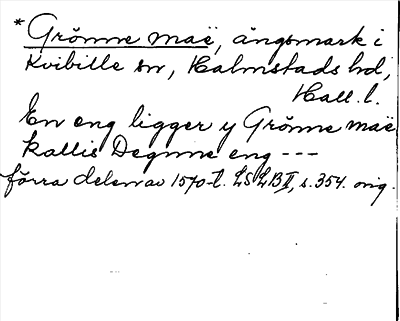 * Grönne maë, ängsmark i
Kvibille sn, Halmstads hd,
Hall. l.
En eng ligger y Grönne maë
kallis Degnne eng ---
förra delen av 1570-t. LSLB II, s. 354. orig.